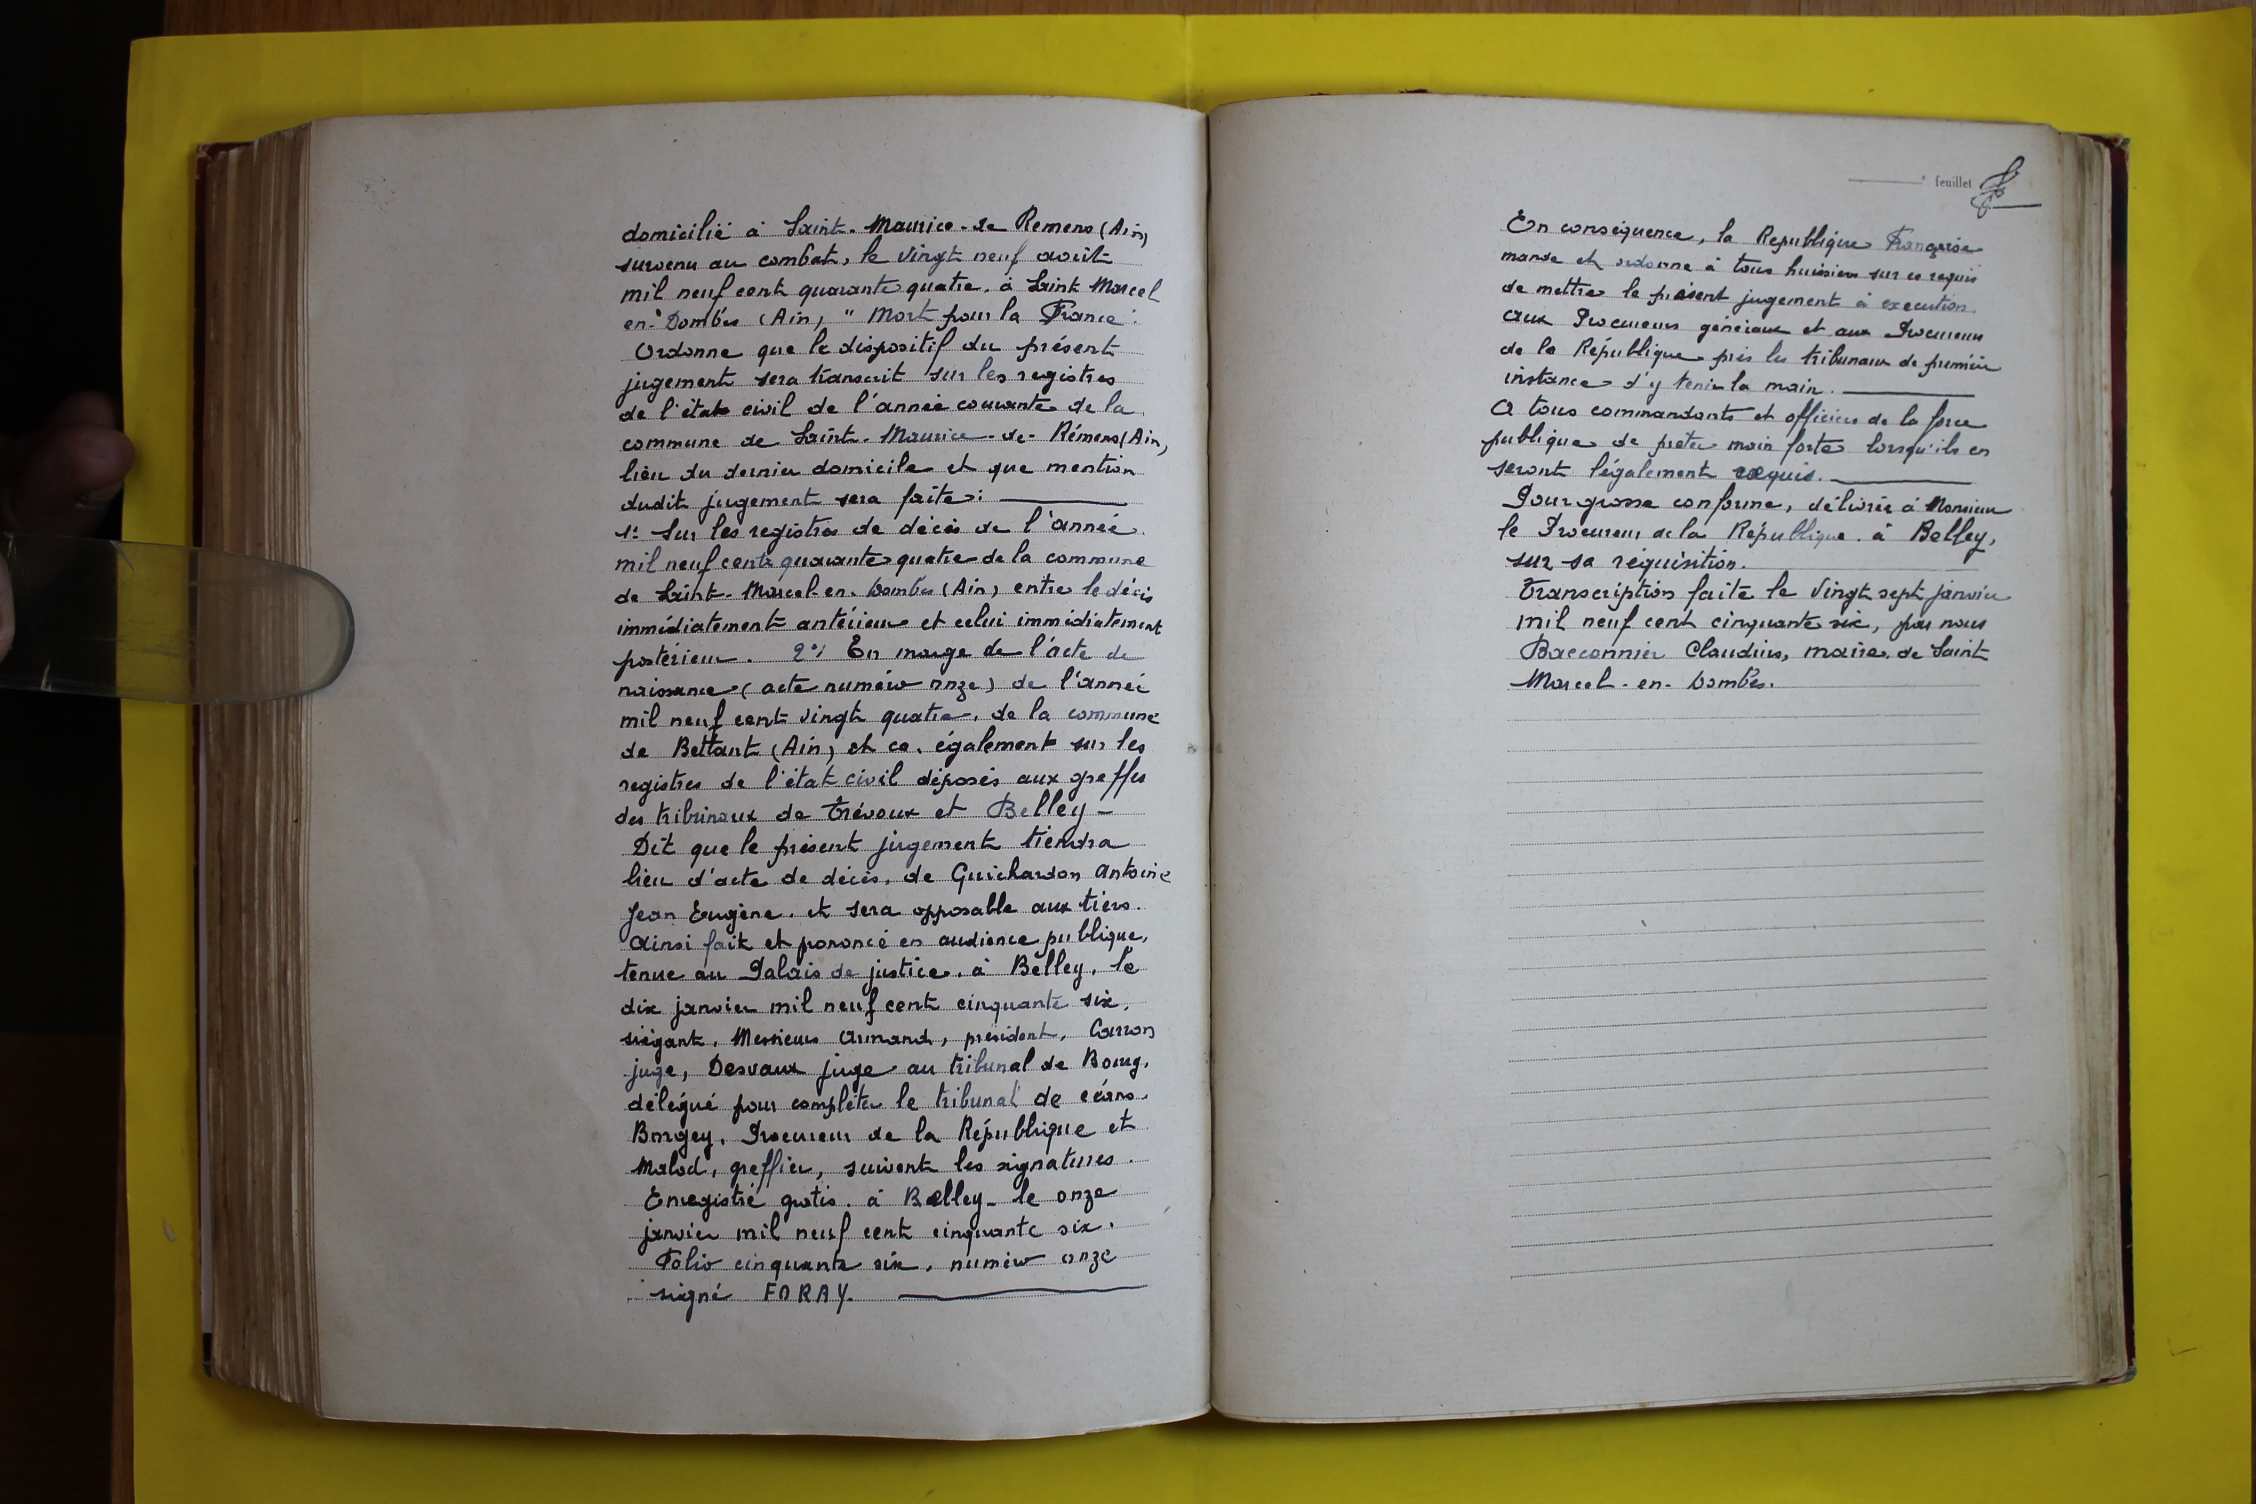 domicilié à Saint-Maurice-de Remens (Ain)
survenu au combat, le vingt neuf août
mil neuf cent quarante quatre, à Saint Marcel
en-Dombes (Ain) "Mort pour la France".
Ordonne que le dispositif du présent
jugement sera transcrit sur les registres
de l'état civil de l'année courante de la
commune de Saint-Maurice-de-Rémens (Ain)
lieu du dernier domicile et que mention
dudit jugement sera faite:
1: Sur les registres de décès de l'année
mil neuf cent quarante quatre de la commune
de Saint-Marcel-en-Dombes (Ain) entre le décès
immédiatement antérieur et celui immédiatement
postérieur. 2°/ En marge de l'acte de
naissance (acte numéro onze) de l'année
mil neuf cent vingt quatre, de la commune
de Bettant (Ain) et ce, également sur les
registres de l'état civil déposés aux greffes
des tribunaux de Trévoux et Belley-
Dit que le présent jugement tiendra
lieu d'acte de décès, de Guichardon Antoine
Jean Eugène, et sera opposable aux tiers.
Ainsi fait et pononcé en audience publique,
tenue au Palais de justice, à Belley, le
dix janvier mil neuf cent cinquante six,
siégant, Messieurs Armand, président, Carron
juge, Desvaux juge au tribunal de Bourg,
délégué pour compléter le tribunal de céans.
Borgey, Procureur de la République et
Malod, greffier, suivent les signatures.
Enregistré gratis, à Belley-le onze
janvier mil neuf cent cinquante six.
Folio cinquante six, numéro onze
signé FORAY.
feuillet
En conséquence, la République Française
mande et ordonne à tous huissiers sur ce requis
de mettre le présent jugement à exécution.
aux Procureurs généraux et aux Procureurs
de la République près les tribunaux de première
instance d'y tenir la main.
A tous commandants et officiers de la force
publique de prêter main forte lorsqu'ils en
seront légalement requis.
Pour grosse conforme, délivrée à Monsieur
le Procureur de la République à Belley,
sur sa réquisition.
Transcription faite le vingt sept janvier
mil neuf cent cinquante six, par nous
Bacconnier Claudius, maire de Saint
Marcel-en-Dombes.